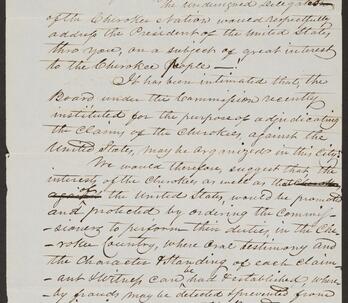 The undersigned delegates
of the Cherokee Nation would respectfully
address the President of the United States
thro you, on a subject of great interest
to the Cherokee People —
It has been intimated that, the
Board under the Commission recently
instituted for the purpose of adjudicating
the claims of the Cherokees, against the
United States, may be organized in this City.
We would therefore, suggest that the
interests of the Cherokees as well as
of the United States, would be promoted
and protected by ordering the Commis-
sioners to perform their duties, in the Che-
rokee Country, where oral testimony and
the Character & Standing of each claim-
ant & Witness can be had & established, where-
by frauds may be detected & prevented from